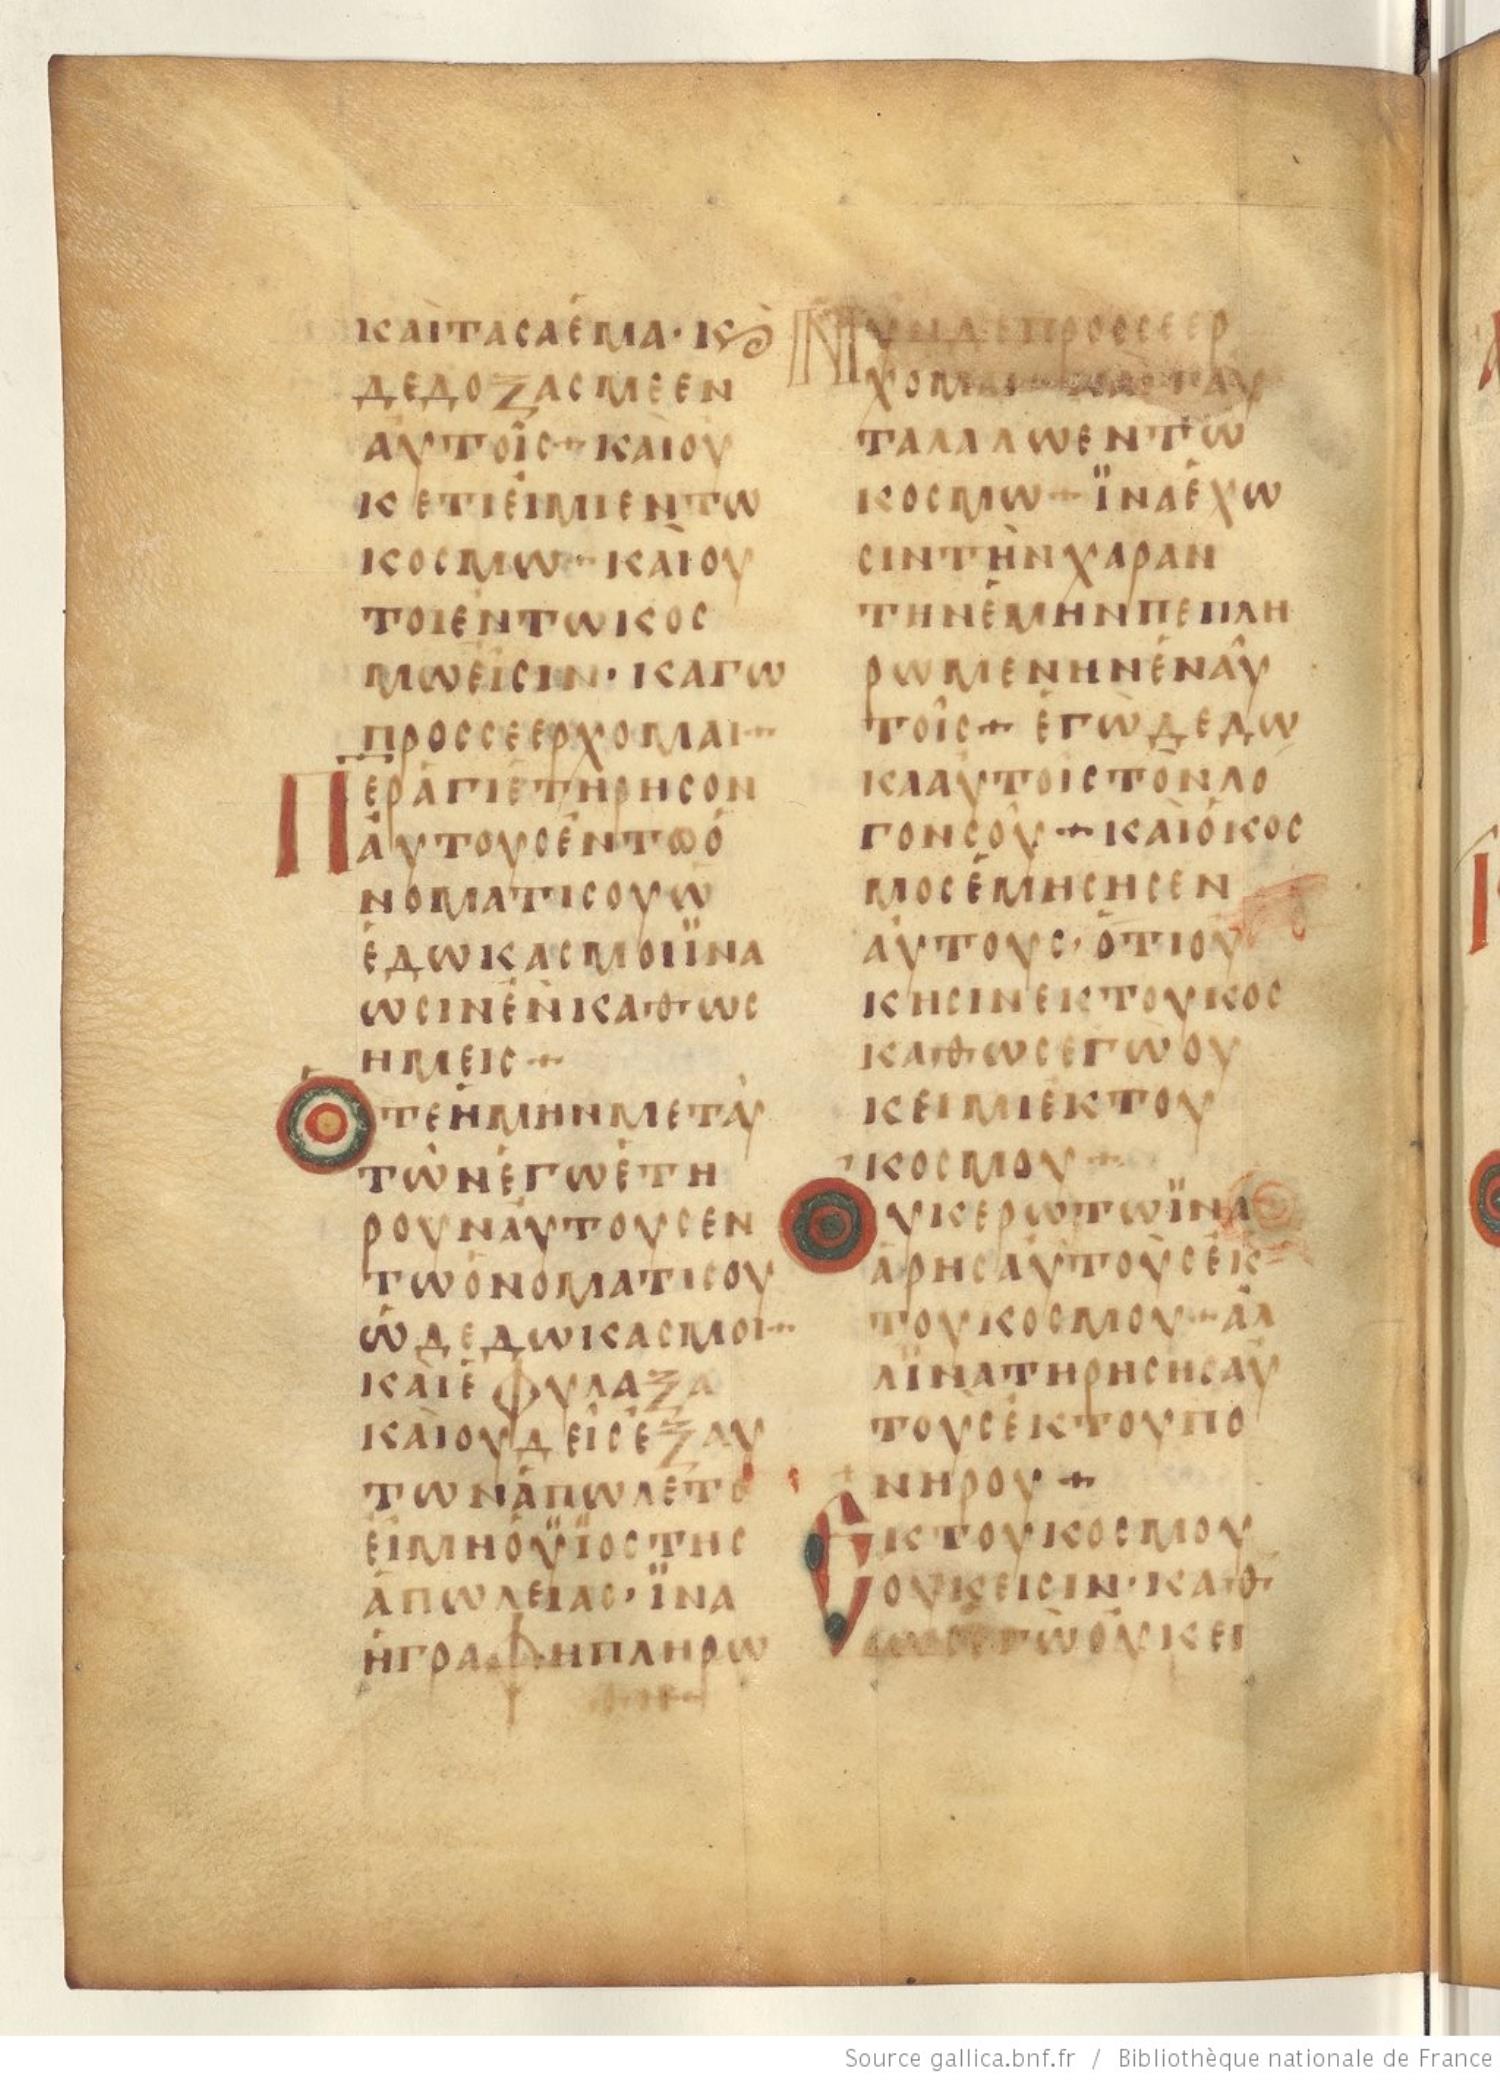 ΚΑῚΤᾺΣΑἘΜΑ· Κ(ΑῚ)
ΔΕΔΟΞΑΣΜΕΕΝ
ΑΥΤΟΙΣ+ ΚΑΙΟΥ
ΚΕΤΙΕΙΜΙΕΝΤΩ
ΚΟΣΜΩ+ ΚΑΙΟΥ
ΤΟΙΕΝΤΩΚΟΣ
ΜΩΕΙΣΙΝ· ΚΑΓΩ
ΠΡΟΣΣΕΕΡΧΟΜΑΙ+
ΠΕΡΑΓΙΕΤΗΡΗΣΟΝ
ΑΥΤΟΥΣΕΝΤΩΟ
ΝΟΜΑΤΙΣΟΥΩ
ΕΔΩΚΑΣΜΟΙΪΝΑ
ΩΣΙΝΕΝΚΑΘΩΣ
ΗΜΕΙΣ+
ΟΤΕΗΜΗΝΜΕΤΑΥ
ΤΩΝΕΓΩΕΤΗ
ΡΟΥΝΑΥΤΟΥΣΕΝ
ΤΩΟΝΟΜΑΤΙΣΟΥ
ΩΔΕΔΩΚΑΣΜΟΙ+
ΚΑΙΕΦΥΛΑΞΑ
ΚΑΙΟΥΔΕΙΣΕΞΑΥ
ΤΩΝΑΠΩΛΕΤΟ
ΕΙΜΗΟΫΪΟΣΤΗΣ
ΑΠΩΛΕΙΑΣ· ΪΝΑ
ΗΓΡΑΦΗΠΛΗΡΩ
ΘΗ+
ΝΥΝΔΕΠΡΟΣΣΕΕΡ
ΧΟΜΑΙ+ ΚΑΙΤΑΥ
ΤΑΛΑΛΩΕΝΤΩ
ΚΟΣΜΩ+ ΪΝΑΕΧΩ
ΣΙΝΤΗΝΧΑΡΑΝ
ΤΗΝΕΜΗΝΠΕΠΛΗ
ΡΩΜΕΝΗΝΕΝΑΥ
ΤΟΙΣ+ ΕΓΩΔΕΔΩ
ΚΑΑΥΤΟΙΣΤΟΝΛΟ
ΓΟΝΣΟΥ+ ΚΑΙΟΚΟΣ
ΜΟΣΕΜΗΣΗΣΕΝ
ΑΥΤΟΥΣ· ΟΤΙΟΥ
ΚΗΣΙΝΕΚΤΟΥΚΟΣ
ΚΑΘΩΣΕΓΩΟΥ
ΚΕΙΜΙΕΚΤΟΥ
ΚΟΣΜΟΥ+
ΟΥΚΕΡΩΤΩΪΝΑ
ΑΡΗΣΑΥΤΟΥΣΕΚ
ΤΟΥΚΟΣΜΟΥ+ ΑΛ
ΛΪΝΑΤΗΡΗΣΗΣΑΥ
ΤΟΥΣΕΚΤΟΥΠΟ
ΝΗΡΟΥ+
ΕΚΤΟΥΚΟΣΜΟΥ
ΟΥΚΕΙΣΙΝ· ΚΑΘ
ΩΣΕΓΩΟΥΚΕΙ
Source gallica.bnf.fr / Bibliothèque nationale de France